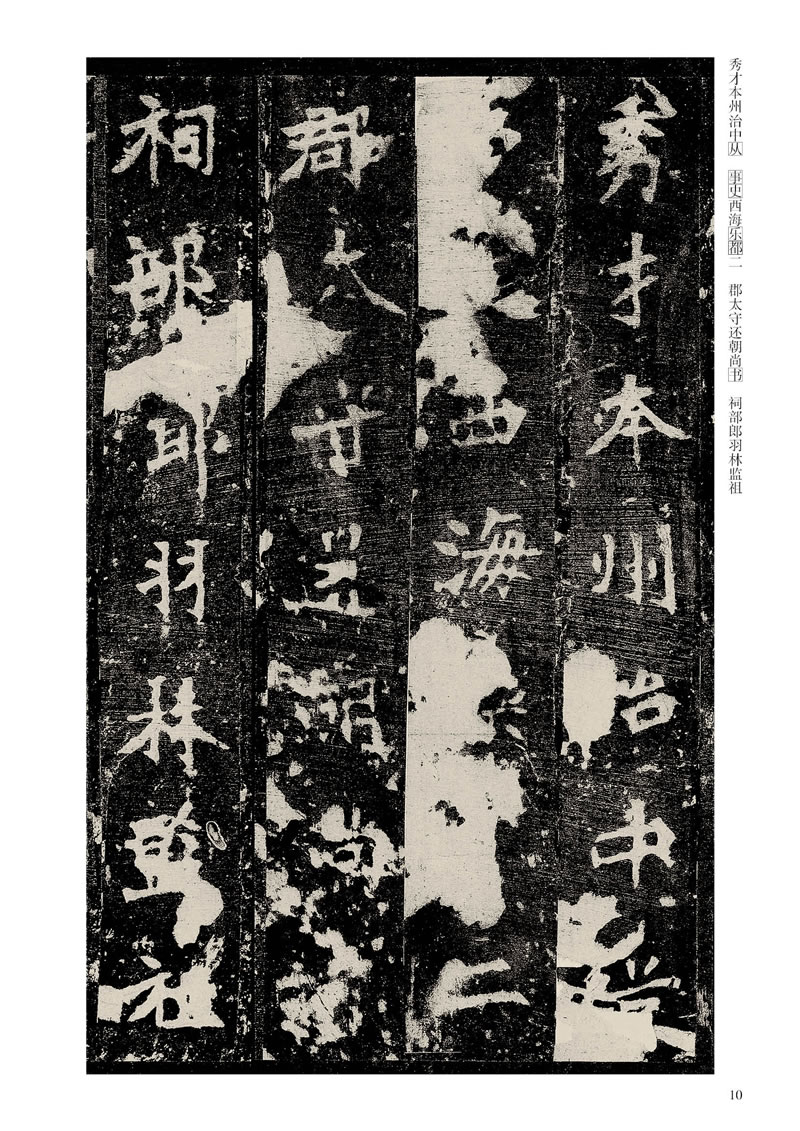 秀才本州治中
西海二
郡太守還朝尚
祠部郎羽林監祖
秀才本州治中从　事史西海乐都二　郡太守还朝尚书　祠部郎羽林监祖
10